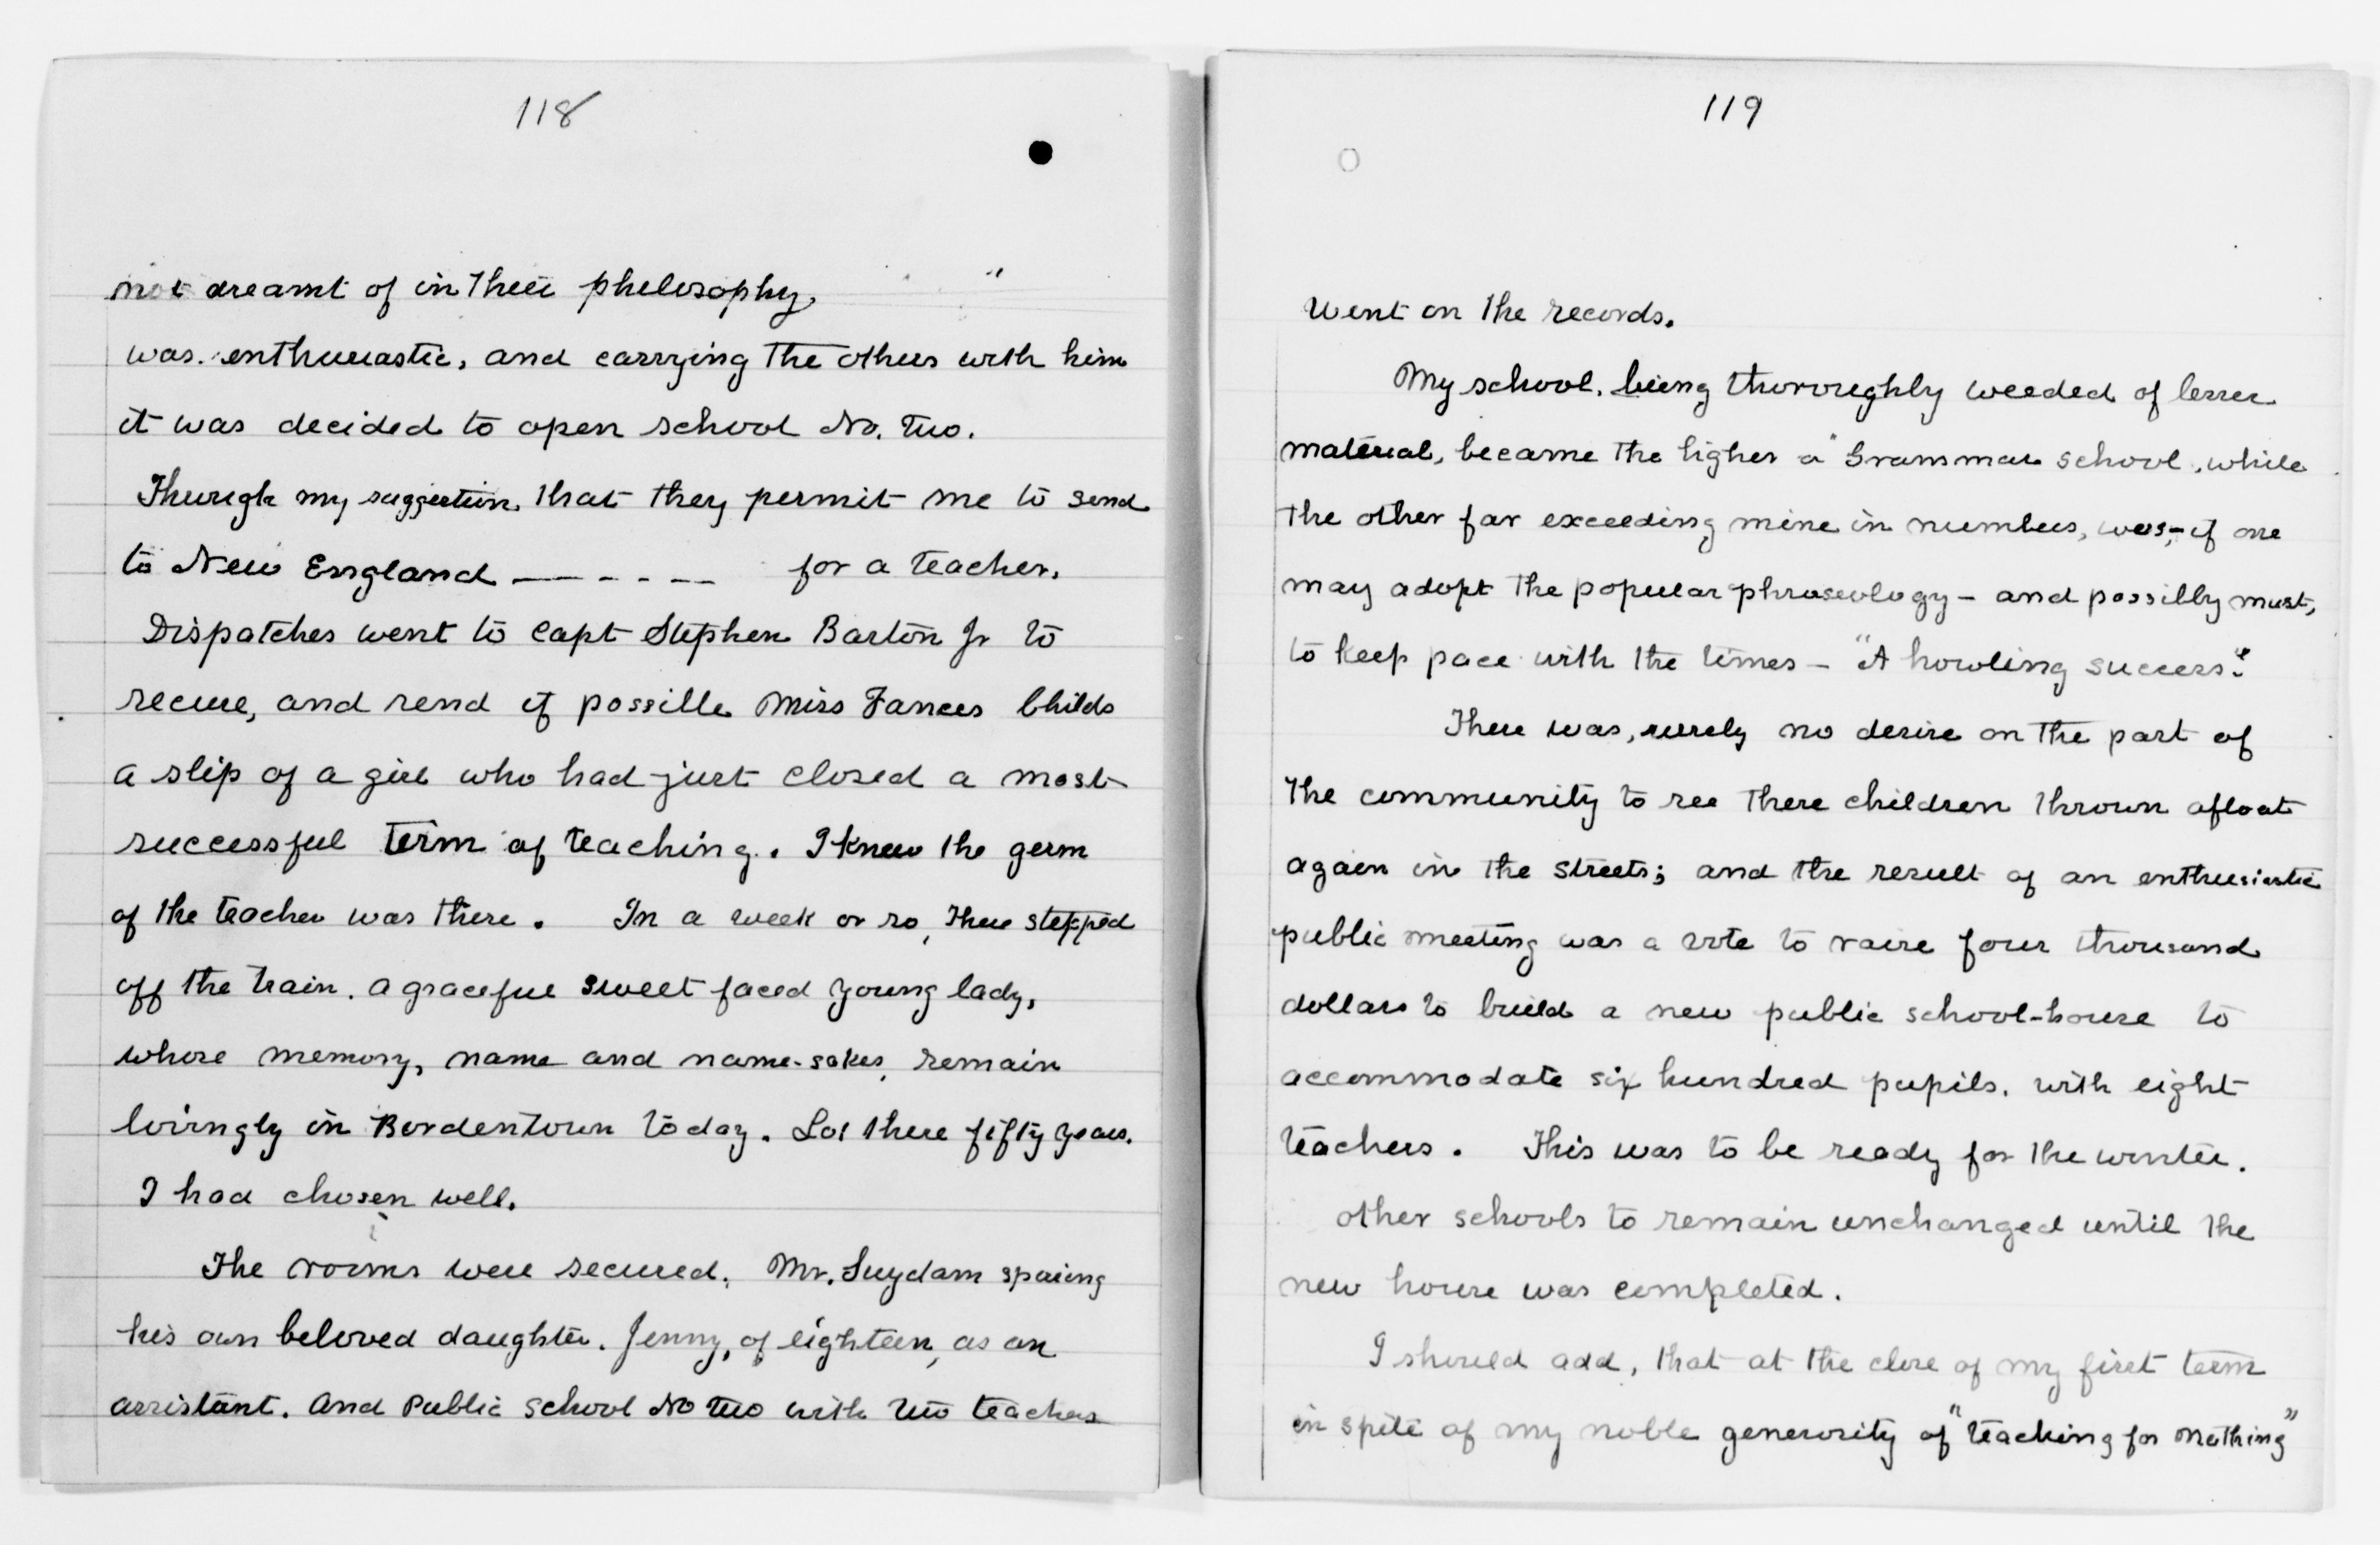 118
not dreamt of in their philosophy. "
was enthusiastic, and carrying the others with him
it was decided to open school No. Two.
Through my suggestion, that they permit me to send
to New England — — - - - — for a teacher.
Dispatches went to Capt Stephen Barton Jr to
secure, and send if possible Miss Fances Childs
a slip of a girl who had just closed a most
successful term of teaching. I knew the germ
of the teacher was there. In a week or so, there stepped
off the train. a graceful sweet faced young lady,
whose memory, name and name-sakes, remain
lovingly in Bordentown today. Lo! these fifty years.
I had chosen well.
The rooms were secured, Mr. Suydam sparing
his own beloved daughter. Jenny, of eighteen, as an
assistant. And Public School No Two with two teachers
119
went on the records.
My school, being thoroughly weeded of lesser
material, became the higher a "Grammar school, while
the other far exceeding mine in numbers, was,- if one
may adopt the popular phraseology - and possibly must,
to keep pace with the times - "A howling success."
There was, surely no desire on the part of
the community to see these children thrown afloat
again in the streets; and the result of an enthusiastic
public meeting was a vote to raise four thousand
dollars to build a new public school-house to
accommodate six hundred pupils, with eight
teachers. This was to be ready for the winter.
other schools to remain unchanged until the
new house was completed.
I should add, that at the close of my first term
in spite of my noble generosity of "teaching for nothing"